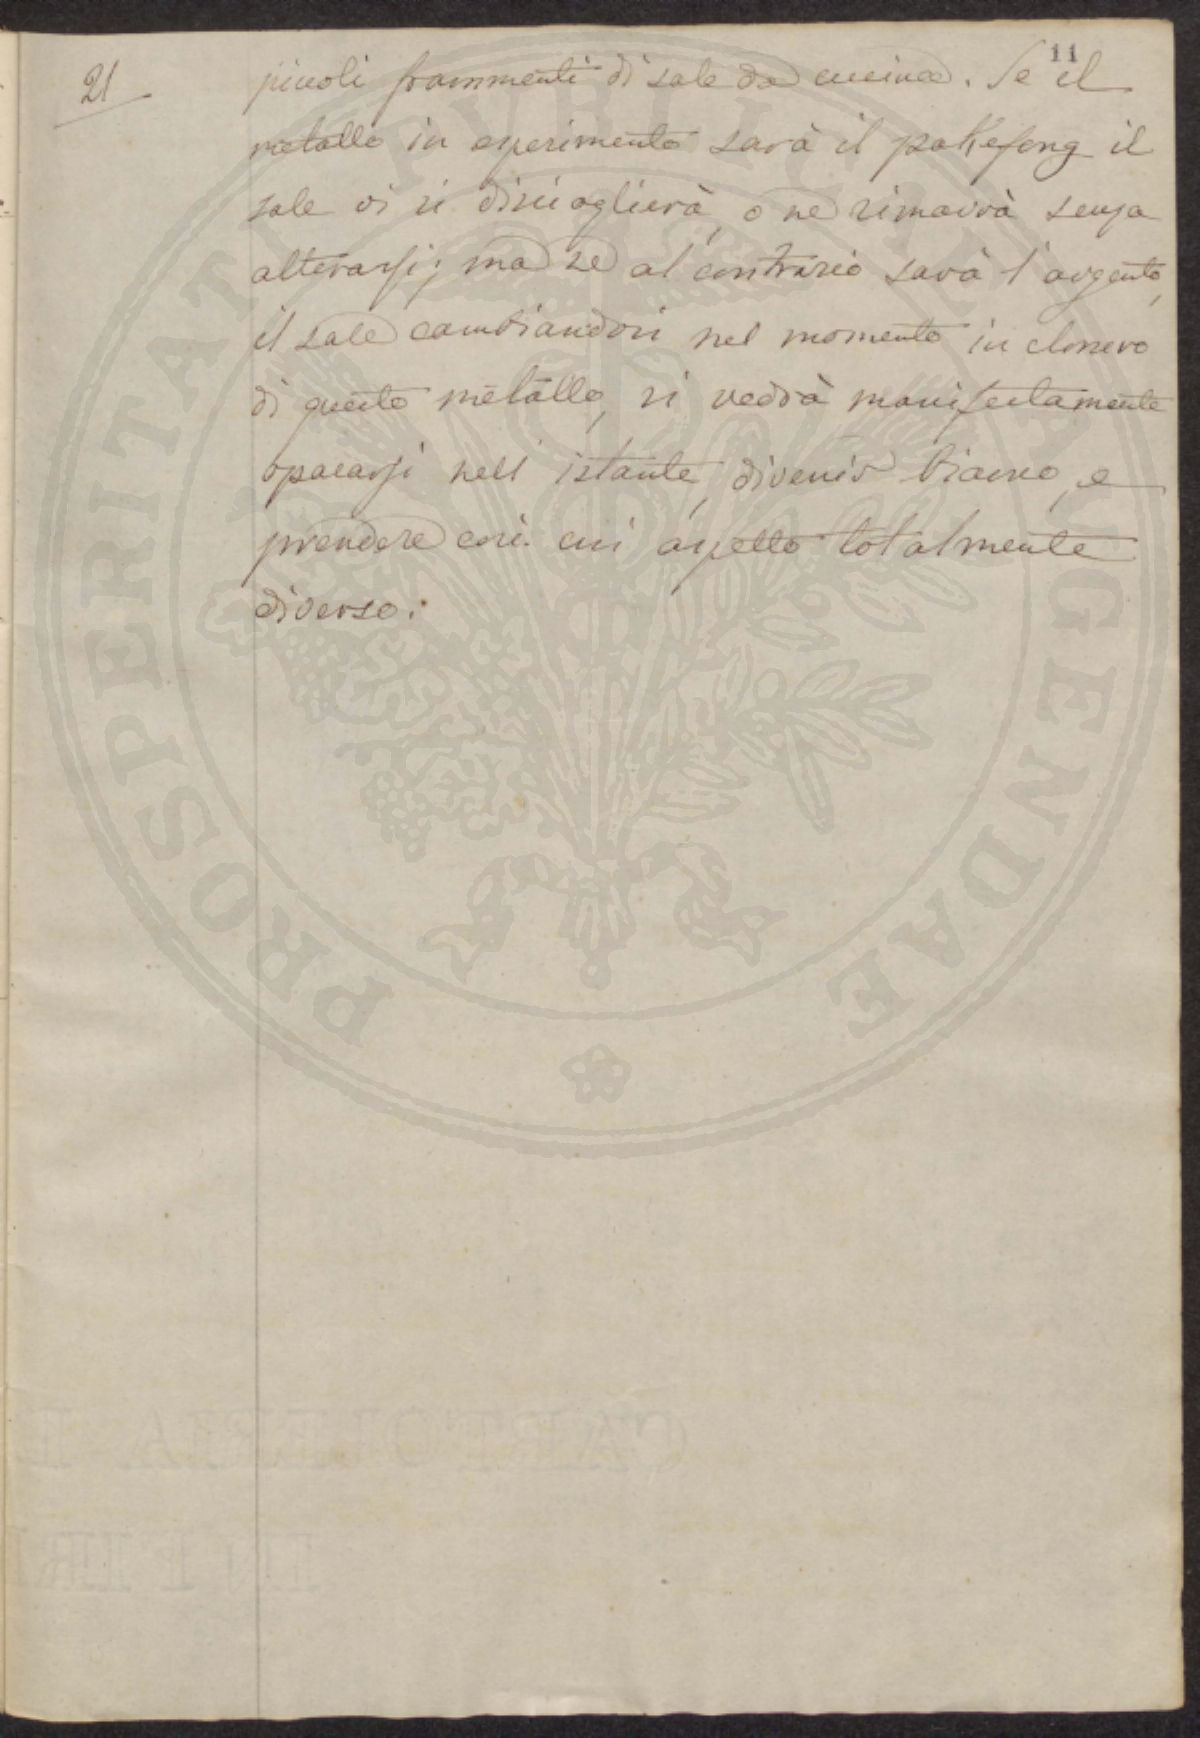 11
21
piccoli frammenti di sale da cucina. Se il
metallo in esperimento sarà il pakefong il
sale vi si discioglierà, o ne rimarrà senza
alterarsi; ma se al contrario sarà l'argento,
il sale cambiandosi nel momento in cloruro
di questo metallo, si vedrà manifestamente
opacarsi nell'istante, divenir bianco, e
prendere così un aspetto totalmente
diverso.
PROSPERITATI PUBLICAE AUGENDAE
CARTOLERIA E
LIBR